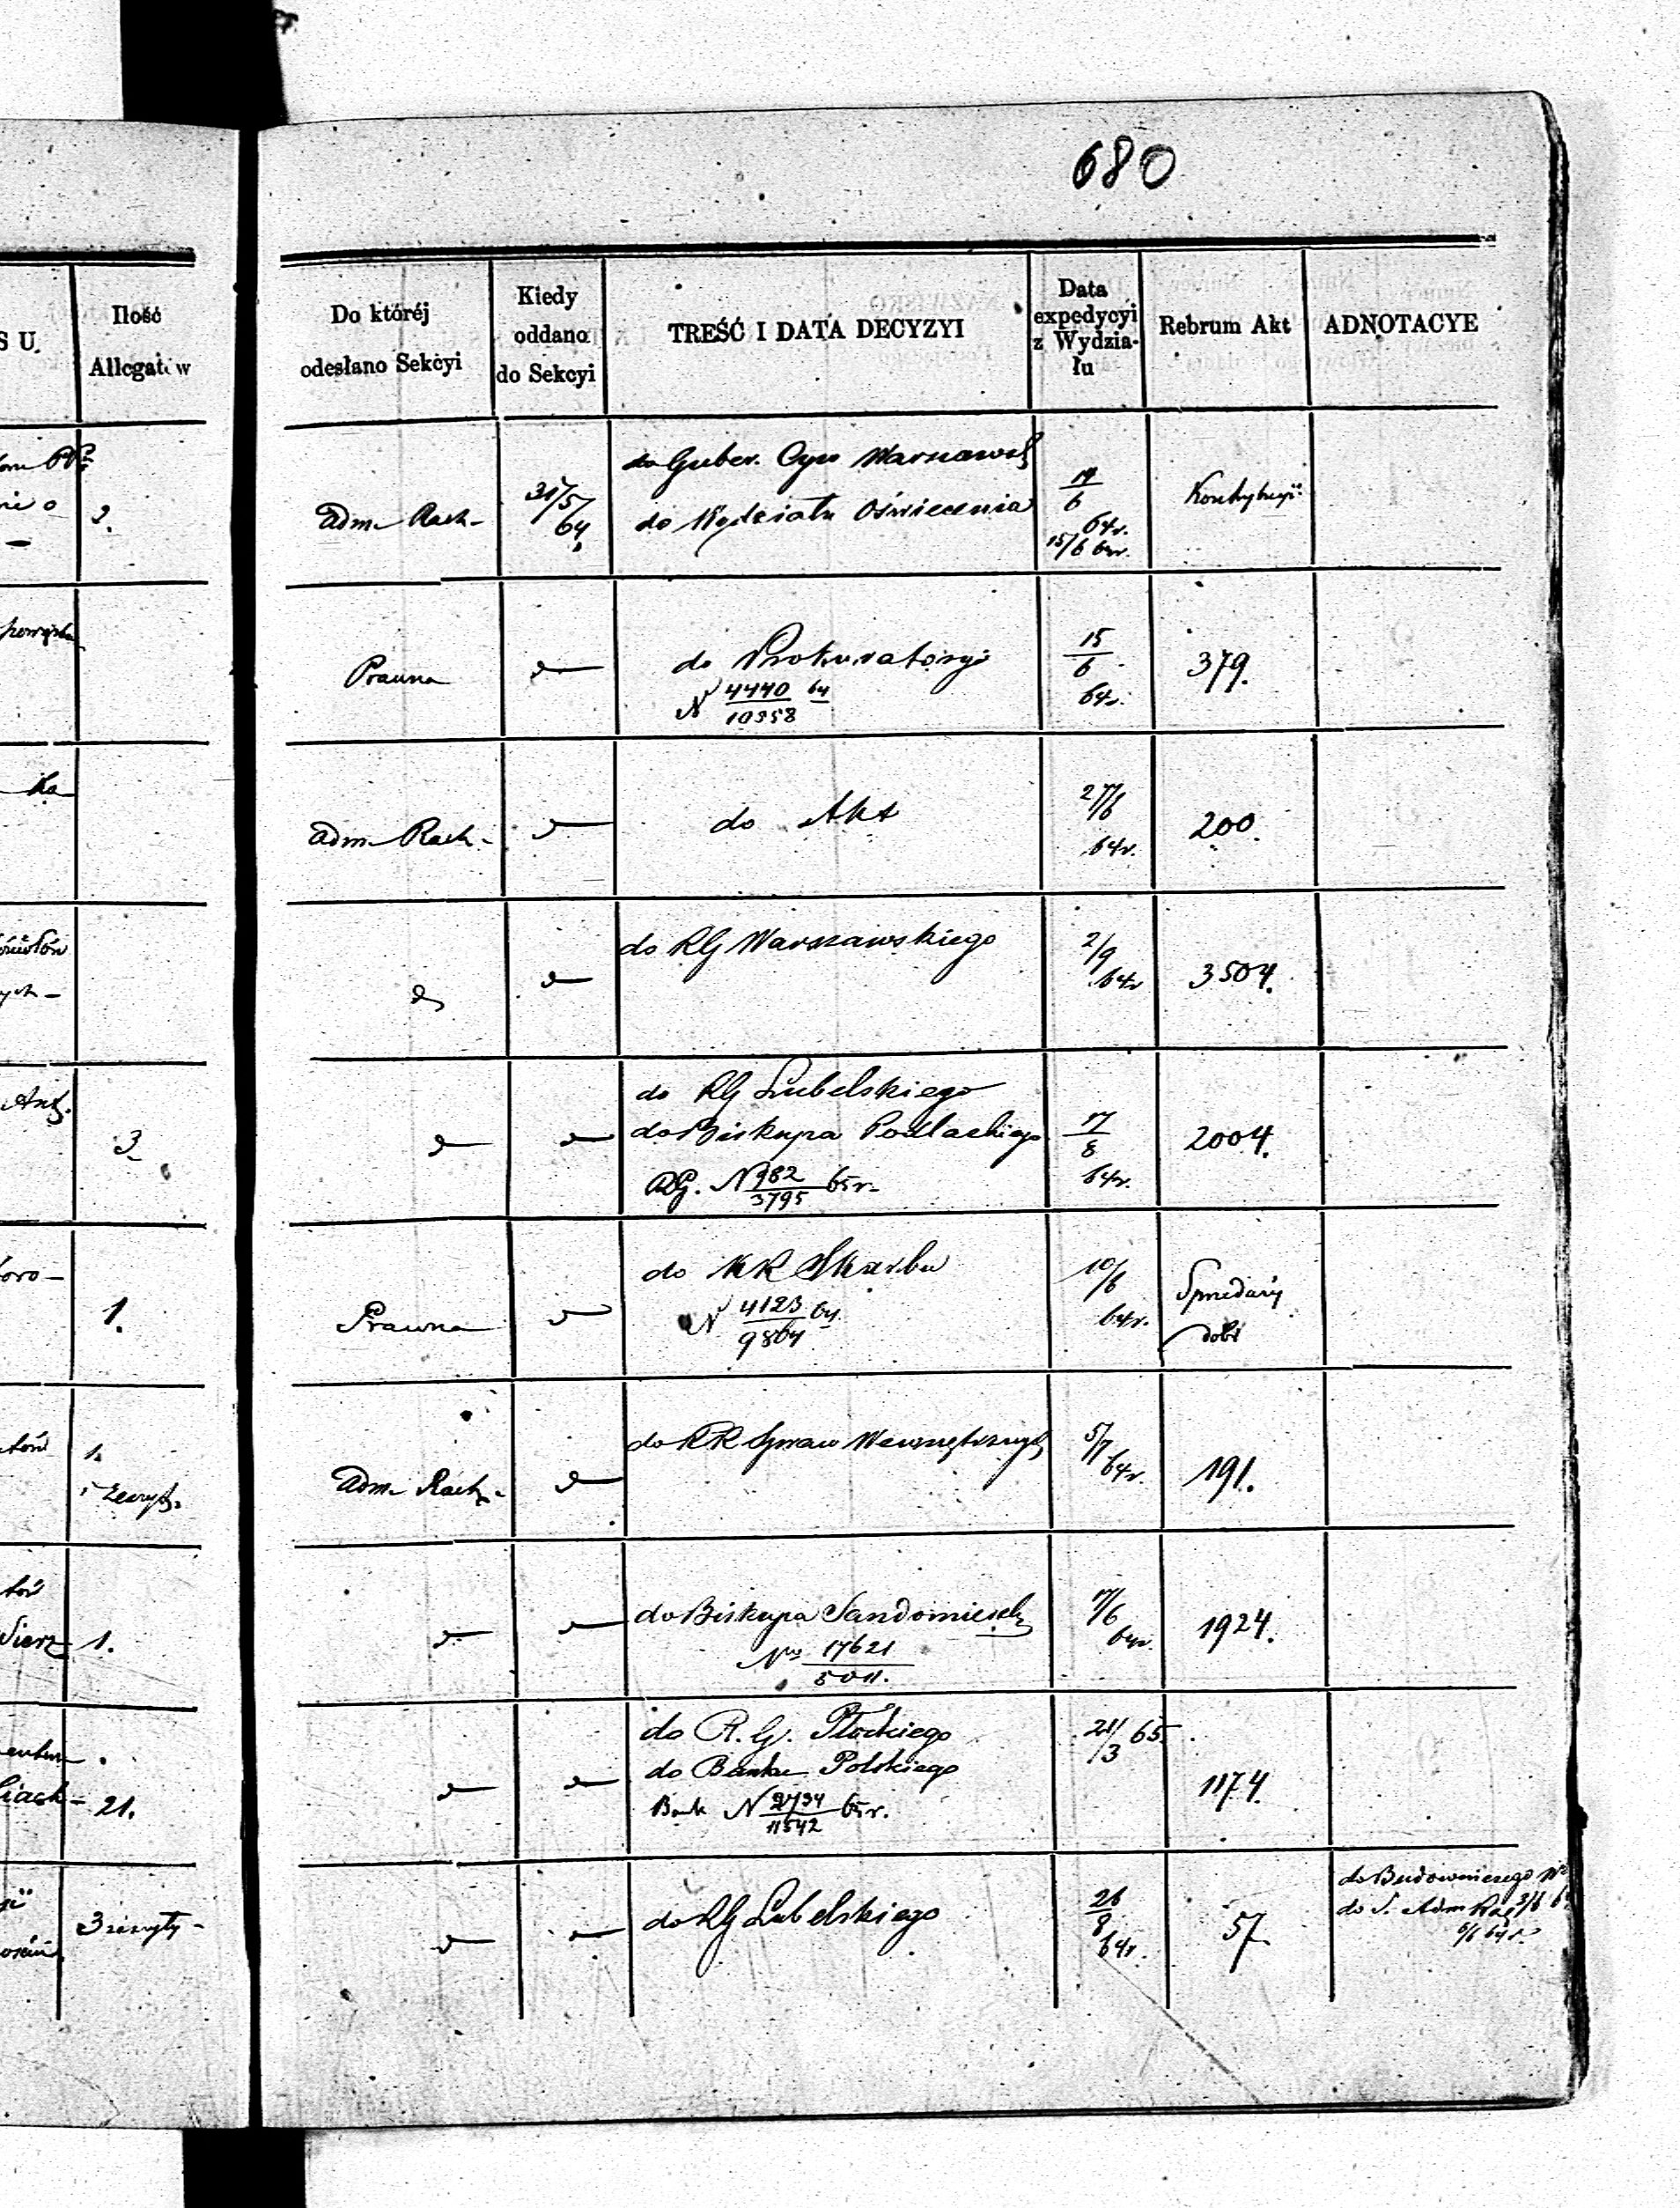 680
S U.
Ilość
Allegatów
Do któréj
odesłano Sekcyi
Kiedy
oddano
do Sekcyi
TREŚĆ I DATA DECYZYI
Data
expedycyi
z Wydzia-
łu
Rebrum Akt
ADNOTACYE
2.
Adm. Rach.
31/5
64
do Guber. Cyw Warszawsk
do Wydziału Oświecenia
6
64r.
15/6 64r.
Prawna
do Prokuratoryi
N 4440 64
10358
15
6
64r.
379.
Ka
Adm. Rach.
do Akt
27/6
64r.
200.
do RG Warszawskiego
2/9
64r
3504.
3
do RG Lubelskiego
do Biskupa Podlaskiego
RG. N 982 65r.
3795
17
8
64r.
2004.
1.
Prawna
do KR Skarbu
N 4123 64
9864
10/6
64r.
Sprzedaży
dóbr
1.
Adm. Rach.
do KR Spraw Wewnętrznych
5/7
64r.
191.
1.
do Biskupa Sandomiersk
No 17621
5011.
17/6
64r.
1924.
21.
do R. G. Płockiego
do Banku Polskiego
Bank N 2734 65r.
11542
21/3 65
1174.
3 zeszyty
do RG Lubelskiego
26
8
64r.
57.
do Budowniczego
do S. Adm Rach 3/6
6/6 64r.